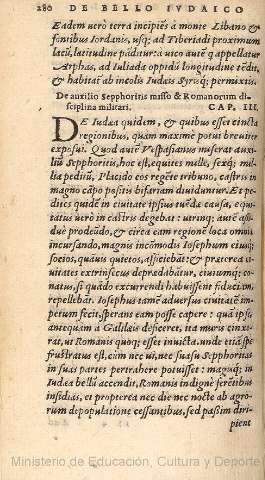 280 DE BELLO IVDAICO
Eadem verò terra incipiẽs à monte Libano &
fontibus Iordanis, usq; ad Tiberiadi proximum
lacũ, latitudine pãditur: à vico autẽ q appellatur
Arphas, ad Iuliada oppidũ longitudine tẽdit,
& habitãt ab incolis Iudæis Syrisq; permixtis.
De auxilio Sepphoritis misso & Romanorum di-
sciplina militari. CAP. III.
DE Iudæa quidem, & quibus esset cincta
regionibus, quam maximè potui breviter
exposui. Quod autẽ Vespasianus miserat auxi-
liũ Sepphoritis, hoc est, equites mille, sexq; mil-
lia peditũ, Placido eos regẽte tribuno, castris in
magno cãpo positis bifariam dividuntur. Et pe-
dites quidẽ in civitate ipsius tuẽdæ causa, equi-
tatus verò in castris degebat: utriq; autẽ assi-
duè prodeũdo, & circa eam regionẽ loca omnia
incursando, magnis incõmodis Iosephum eiusq;
socios, quãvis quietos, afficiebãt: & præterea ci-
vitates extrinsecus deprædabãtur, eiusmq; co-
natus, si quãdo excurrendi habuissent fiduciam,
repellebãt. Iosephus tamẽ adversus civitatẽ im-
petum fecit, sperans eam posse capere: quã ipse
antequam à Galilæis deficeret, ita muris cinxe-
rat, ut Romanis quoq; esset invicta. unde etiã spe
frustratus est, cùm nec vi, nec suasu Sepphoritas
in suas partes pertrahere potuisset: magisq; in
Iudæa bellũ accendit, Romanis indignè ferẽtibus
insidias, et propterea nec die nec nocte ab agro-
rum depopulatione cessantibus, sed passim diri-
pient
Ministerio de Educación, Cultura y Deporte